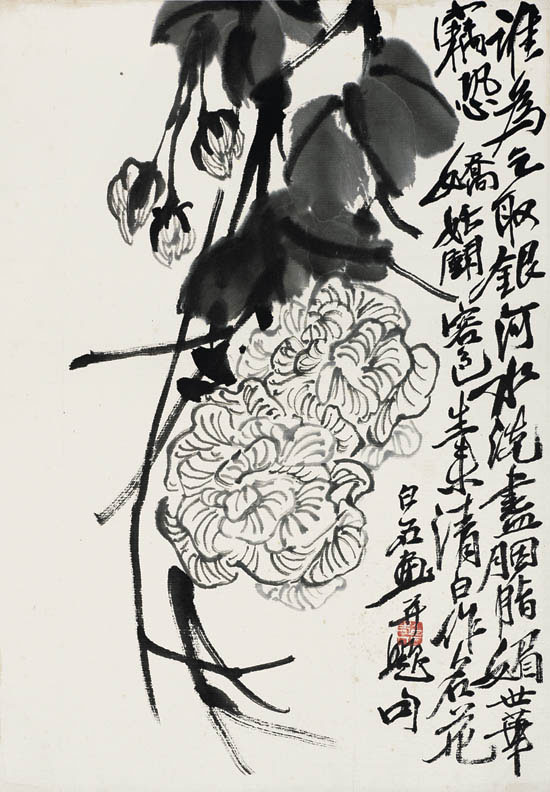 誰為乞取銀河水洗盡胭脂媚世華
竊恐嬌妬鬭容色生來清白作名花
白石畫并題句